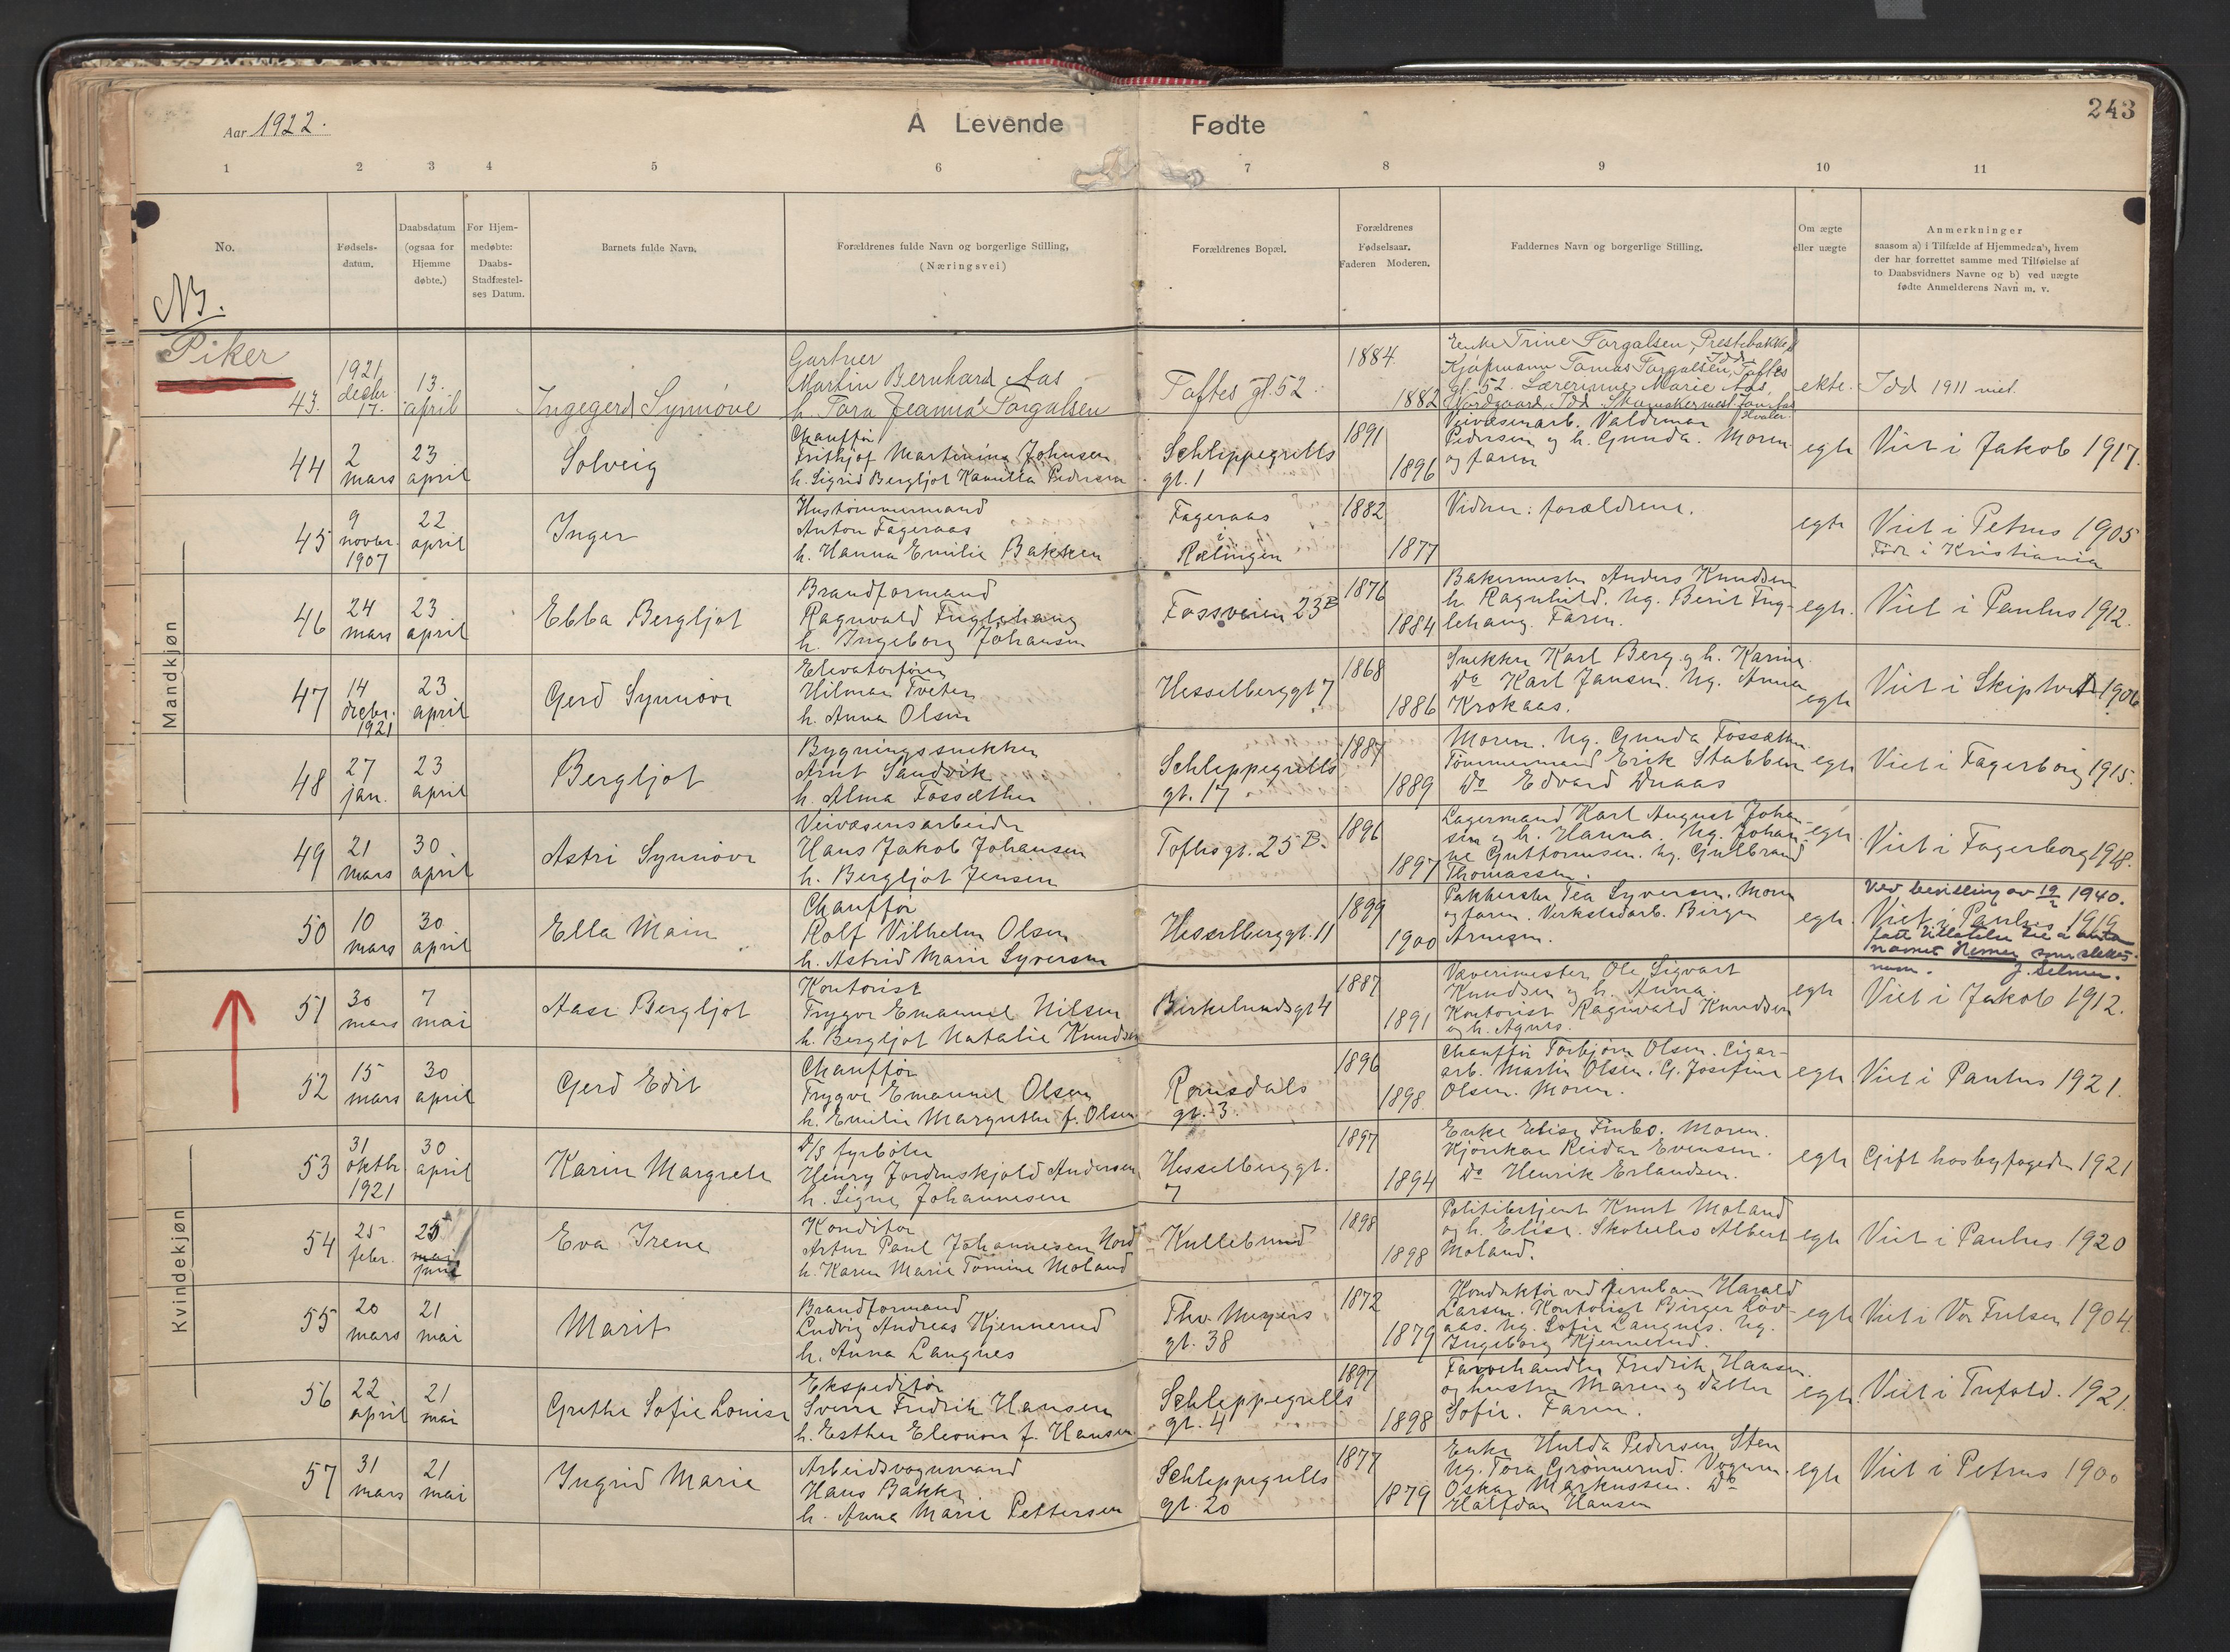 243
Aar 1922.
A Levende Fødte
1 2 3 4 5 6 7 8 9 10 11
No.
Fødsels-
datum.
Daabsdatum
(ogsaa for
Hjemme
døbte.)
For Hjem-
medøbte:
Daabs-
Stadfæstel-
ses Datum.
Barnets fulde Navn.
Forældrenes fulde Navn og borgerlige Stilling,
(Næringsvei)
Forældrenes Bopæl.
Forældrenes
Fødselsaar.
Faderen Moderen.
Faddernes Navn og borgerlige Stilling.
Om ægte
eller uægte
Anmerkninger
saasom a) i Tilfælde af Hjemmedaab, hvem
der har forrettet samme med Tilføielse af
to Daabsvidners Navne og b) ved uægte
fødte Anmelderens Navn m. v.
NB.
Piker
Mandkjøn
Kvindekjøn
43.
1921
decbr.
17.
13.
april
Ingegerd Synnøve
Gartner
Martin Bernhard Aas
h. Tora Jeanna Torgalsen
Toftes gt. 52.
1884.
1882
Enke Trine Torgalsen, Prestebakke
Idd
Kjøpmann Tomas Torgalsen, Toftes
gt. 52. Lærerinne Marie Aas,
Nordgaard, Idd. Skomakermest.
Hvaler.
ekte.
Idd 1911 viet.
44
2
mars
23
april
Solveig
Chauffør
Frithjof Martinius Johnsen
h. Sigrid Bergljot Kamilla Pedersen
Schleppegrells
gt. 1
1891
1896
Veivæsenarb. Valdemar
Pedersen og h. Gunda. Moren
og faren
egte
Viet i Jakob 1917.
45
9
novbr.
1907
22
april
Inger
Hustømmermand
Anton Fageraas
h. Hanna Emilie Bakken
Fageraas
i
Rælingen
1882
1877
Vidner: forældrene.
egte
Viet i Petrus 1905
Født i Kristiania
46
24
mars
23
april
Ebba Bergljot
Brandformand
Ragnvald Fuglehaug
h. Ingeborg Johansen
Fossveien 23B
1876
1884
Bakermester Anders Knudsen
h. Ragnhild. Ug. Berit Fug-
lehaug. Faren.
egte.
Viet i Paulus 1912.
47
14
decbr.
1921
23
april
Gerd Synnøve
Elevatorfører
Hilmar Tveten
h. Anna Olsen
Hesselberggt 7
1868
1886
Snekker Karl Berg og h. Karine
Do Karl Jansen. Ug. Anna
Krokaas.
egte
Viet i Skiptvet 1906
48
27
jan.
23
april
Bergljot
Bygningssnekker
Arnt Sandvik
h. Alma Fossæther
Schleppegrells
gt. 17
1887
1889
Moren. Ug. Gunda Fossæther
Tømmermand Erik Stubben
Do Edvard Duaas
egte
Viet i Fagerborg 1915.
49
21
mars
30
april
Astri Synnøve
Veivæsensarbeider
Hans Jakob Johansen
h. Bergljot Jensen
Toftesgt. 25 B.
1896
1897
Lagermand Karl August Johan-
sen og h. Hanna. Ug. Johan-
ne Guttormsen. Ug. Gulbrand
Thomassen.
egte.
Viet i Fagerborg 1918.
50
10
mars
30
april
Ella Main
Chauffør
Rolf Vilhelm Olsen
h. Astrid Marie Syversen
Hesselberggt. 11
1899
1900
Pakkerske Tea Syversen. Moren
og faren. Verkstedarb. Birger
Arnesen.
egte.
Ved bevilling av 19/2 1940.
Viet i Paulus 1919
fått tillatelse til å anta
navnet Hemer som slekts-
navn. J. Selmer.
51
30
mars
7
mai
Aase Bergljot
Kontorist
Trygve Emanuel Nilsen
h. Bergljot Natalie Knudsen
Birkelundsgt 4
1887
1891
Væverimester Ole Sigvart
Knudsen og h. Anna.
Kontorist Ragnvald Knudsen
og h. Agnes.
egte
Viet i Jakob 1912.
52
15
mars
30
april
Gerd Edit
Chauffør
Trygve Emanuel Olsen
h. Emilie Margrethe f. Olsen
Romsdals
gt. 3.
1896
1898
Chauffør Torbjørn Olsen. Cigar-
arb. Martin Olsen. G. Josefine
Olsen. Moren.
egte
Viet i Paulus 1921.
53
31
oktbr
1921
30
april
Karin Margrete
D/S fyrbøter
Henry Jordenskjold Andersen
h. Signe Johannesen
Hesselberggt.
7
1897
1894
Enke Elise Finbo. Moren.
Kjørekar Reidar Evensen.
Do Henrik Erlandsen.
egte
Gift hos byfogden 1921
54
25
febr.
25
mai
juni
Eva Irene
Konditor
Artur Paul Johannesen Nord
h. Karen Marie Tomine Moland
Kullebund
1898
1898
Politibetjent Knut Moland
og h. Elise. Skoelev Albert
Moland.
egte
Viet i Paulus 1920
55
20
mars
21
mai
Marit
Brandformand
Ludvig Andreas Kjennerud
h. Anna Langnes
Thv. Meyers
gt. 38
1872
1879
Konduktør ved jernban Harald
Larsen. Kontorist Birger Løv-
aas. Ug. Sofie Langnes. Ug.
Ingeborg Kjennerud.
egte
Viet i Vor Frelser 1904.
56
22
april
21
mai
Grethe Sofie Louise
Ekspeditør
Sverre Fredrik Hansen
h. Esther Eleonore f. Hansen
Schleppegrells
gt. 4
1897
1898
Farvehandler Fredrik Hansen
og hustru Maren og datter
Sofie. Faren.
egte.
Viet i Trefold. 1921.
57
31
mars
21
mai
Ingrid Marie
Arbeidsvognmand
Hans Bakke
h. Anna Marie Pettersen
Schleppegrells
gt. 20
1877
1879
Enke Hulda Pedersen Sten
Ug. Tora Grønnerud. Vognm.
Oskar Markussen. Do
Halfdan Hansen
egte
Viet i Petrus 1900